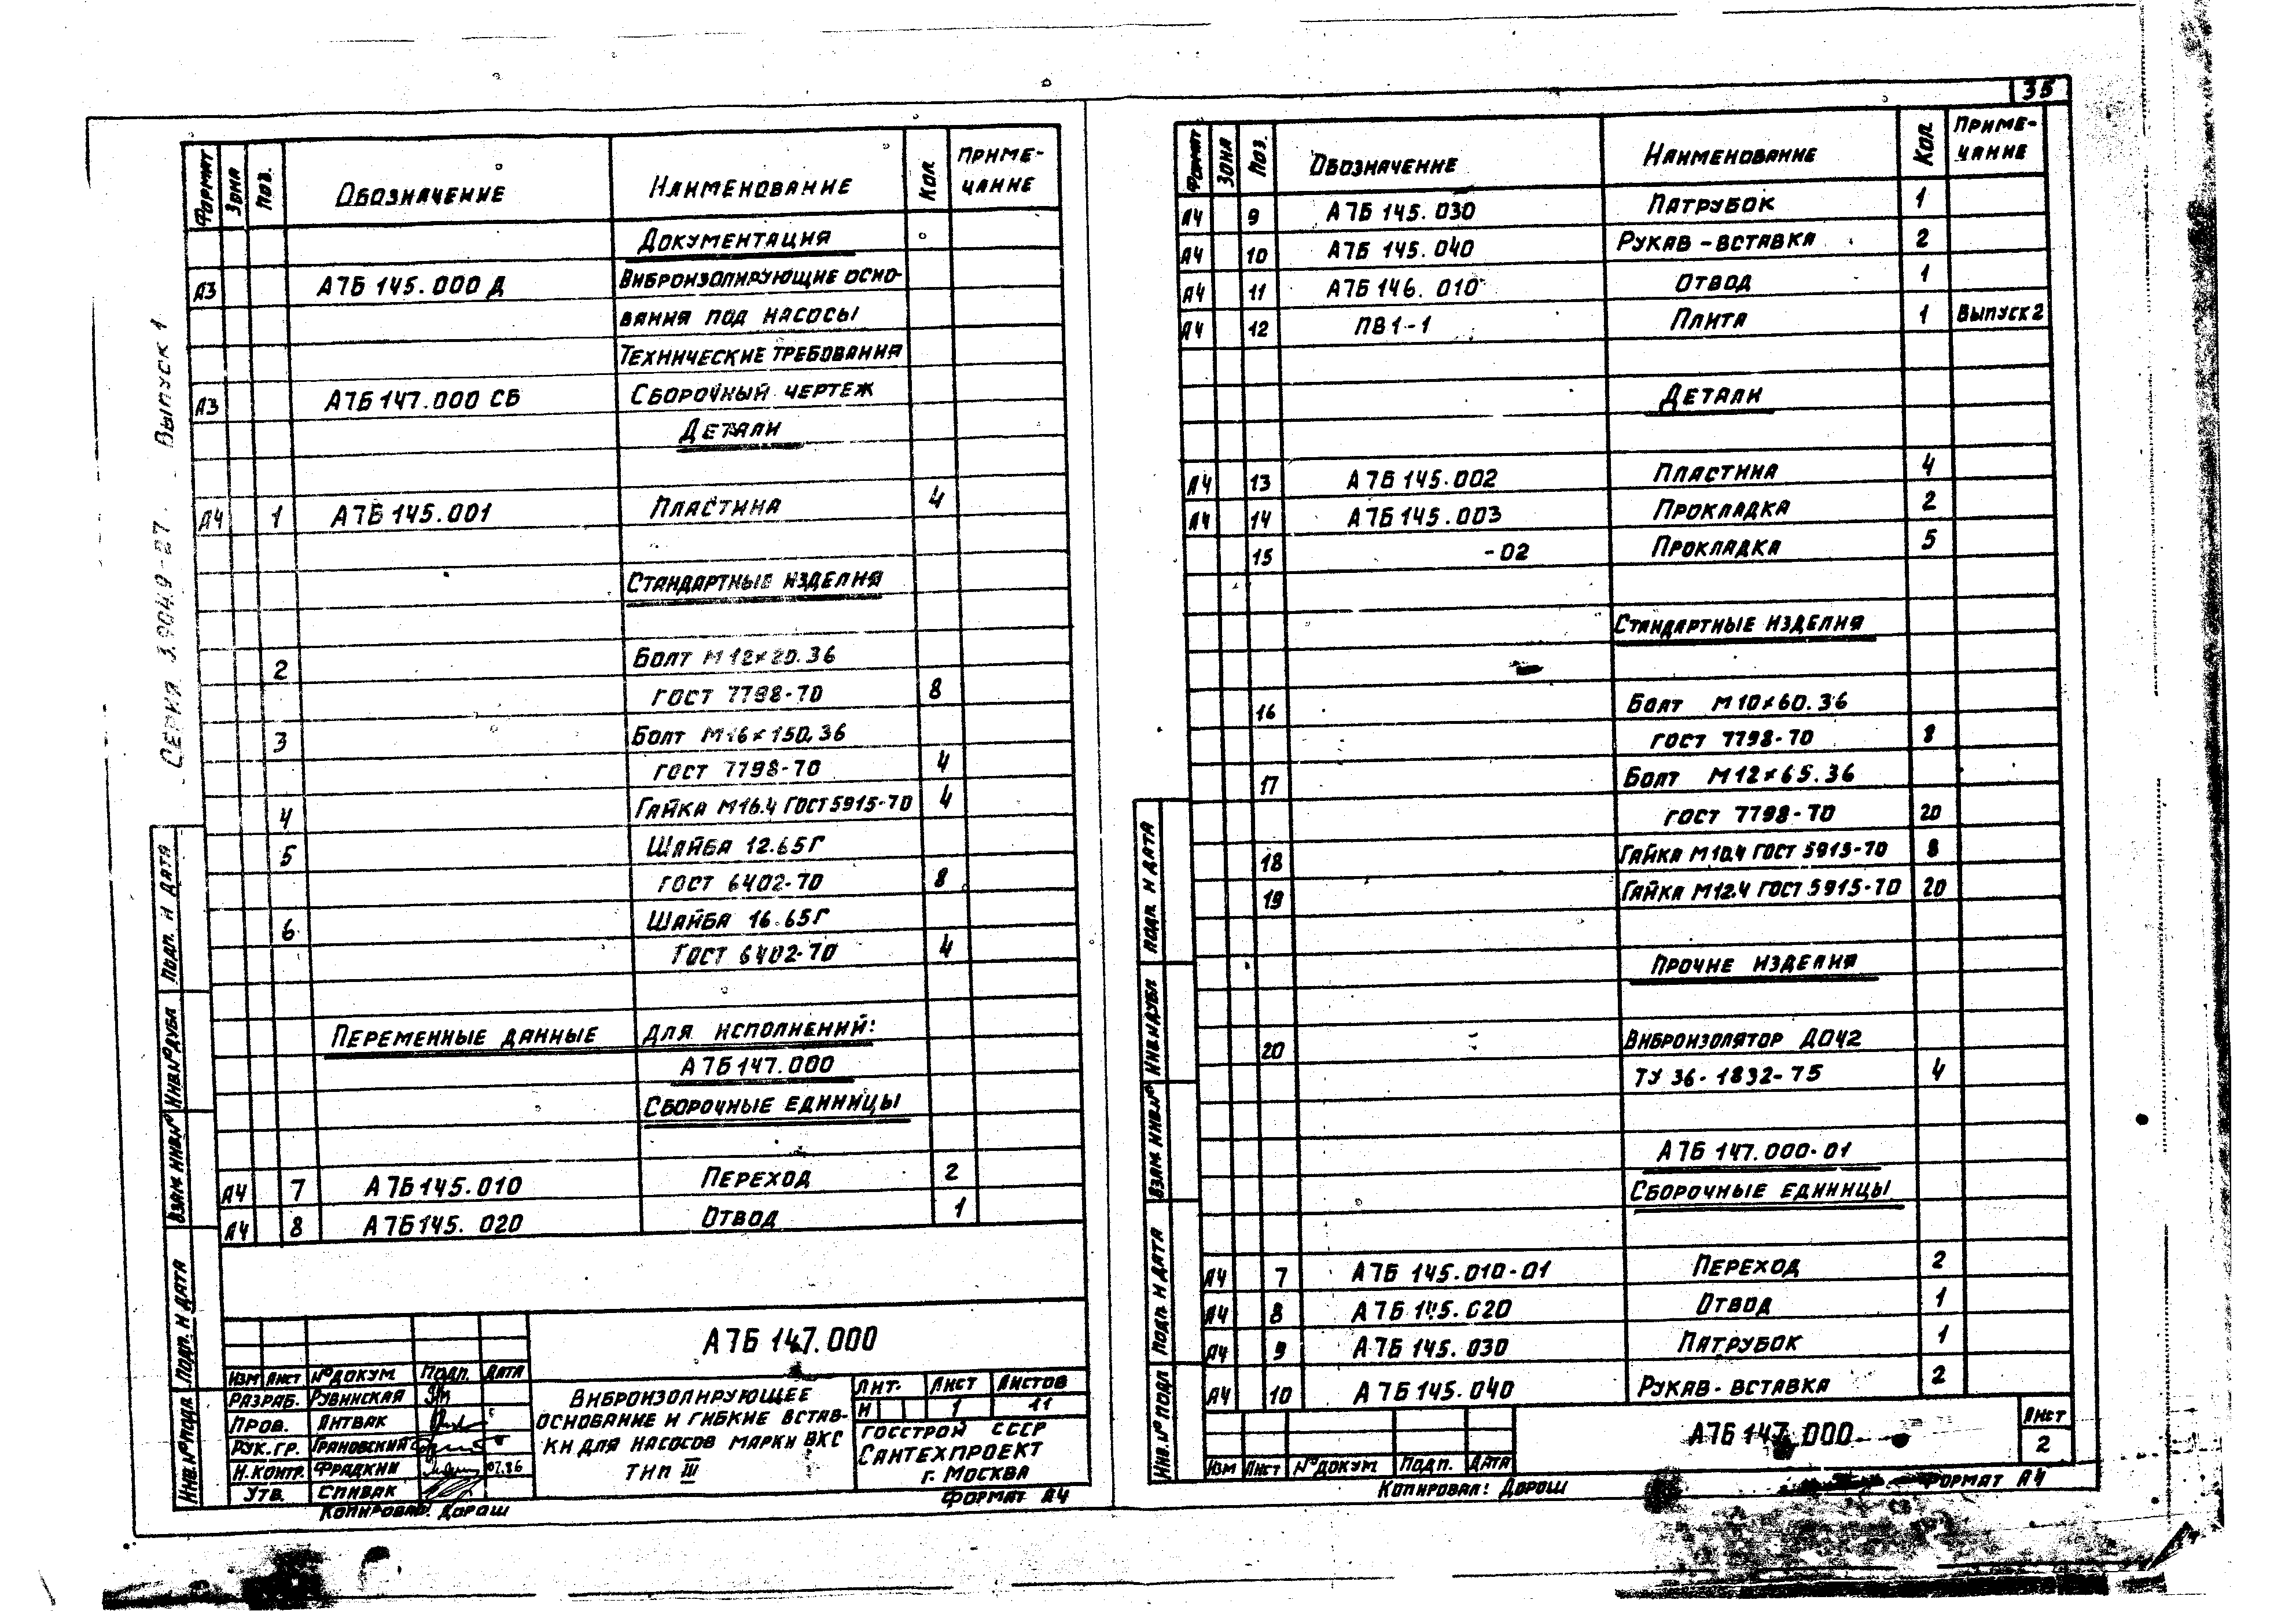 35
Серия 3.904.9-27 Выпуск 1
Формат Зона Поз. Обозначение Наименование Кол Приме-
чание
Документация
А3 А7Б 145.000 Д Виброизолирующие осно-
вания под насосы
Технические требования
А3 А7Б 147.000 СБ Сборочный чертеж
Детали
А4 1 А7Б 145.001 Пластина 4
Стандартные изделия
2 Болт М12×20.36
ГОСТ 7798-70 8
3 Болт М16×150.36
ГОСТ 7798-70 4
4 Гайка М16.4 ГОСТ 5915-70 4
5 Шайба 12.65Г
ГОСТ 6402-70 8
6 Шайба 16.65Г
ГОСТ 6402-70 4
Переменные данные для исполнений:
А7Б 147.000
Сборочные единицы
А4 7 А7Б 145.010 Переход 2
А4 8 А7Б 145.020 Отвод 1
А7Б 147.000
Изм Лист № докум Подп. Дата
Разраб. Рувинская
Пров. Литвак
Рук.гр. Грановский
Н.контр. Фрадкин 07.86
Утв. Спивак
Виброизолирующее
основание и гибкие встав-
ки для насосов марки ВКС
тип III
Лит. Лист Листов
И 1 11
Госстрой СССР
Сантехпроект
г. Москва
Копировал: Дорош Формат А4
Инв.№ подл Подп. и дата Взам.инв.№ Инв.№ дубл Подп. и дата
Формат Зона Поз. Обозначение Наименование Кол. Приме-
чание
А4 9 А7Б 145.030 Патрубок 1
А4 10 А7Б 145.040 Рукав-вставка 2
А4 11 А7Б 146.010 Отвод 1
А4 12 ПВ1-1 Плита 1 Выпуск 2
Детали
А4 13 А7Б 145.002 Пластина 4
А4 14 А7Б 145.003 Прокладка 2
15 -02 Прокладка 5
Стандартные изделия
16 Болт М10×60.36
ГОСТ 7798-70 8
17 Болт М12×65.36
ГОСТ 7798-70 20
18 Гайка М10.4 ГОСТ 5915-70 8
19 Гайка М12.4 ГОСТ 5915-70 20
Прочие изделия
20 Виброизолятор ДО42
ТУ 36-1832-75 4
А7Б 147.000-01
Сборочные единицы
А4 7 А7Б 145.010-01 Переход 2
А4 8 А7Б 145.020 Отвод 1
А4 9 А7Б 145.030 Патрубок 1
А4 10 А7Б 145.040 Рукав-вставка 2
А7Б 147.000
Лист
2
Изм Лист № докум Подп. Дата
Копировал: Дорош Формат А4
Инв.№ подл Подп. и дата Взам.инв.№ Инв.№ дубл Подп. и дата